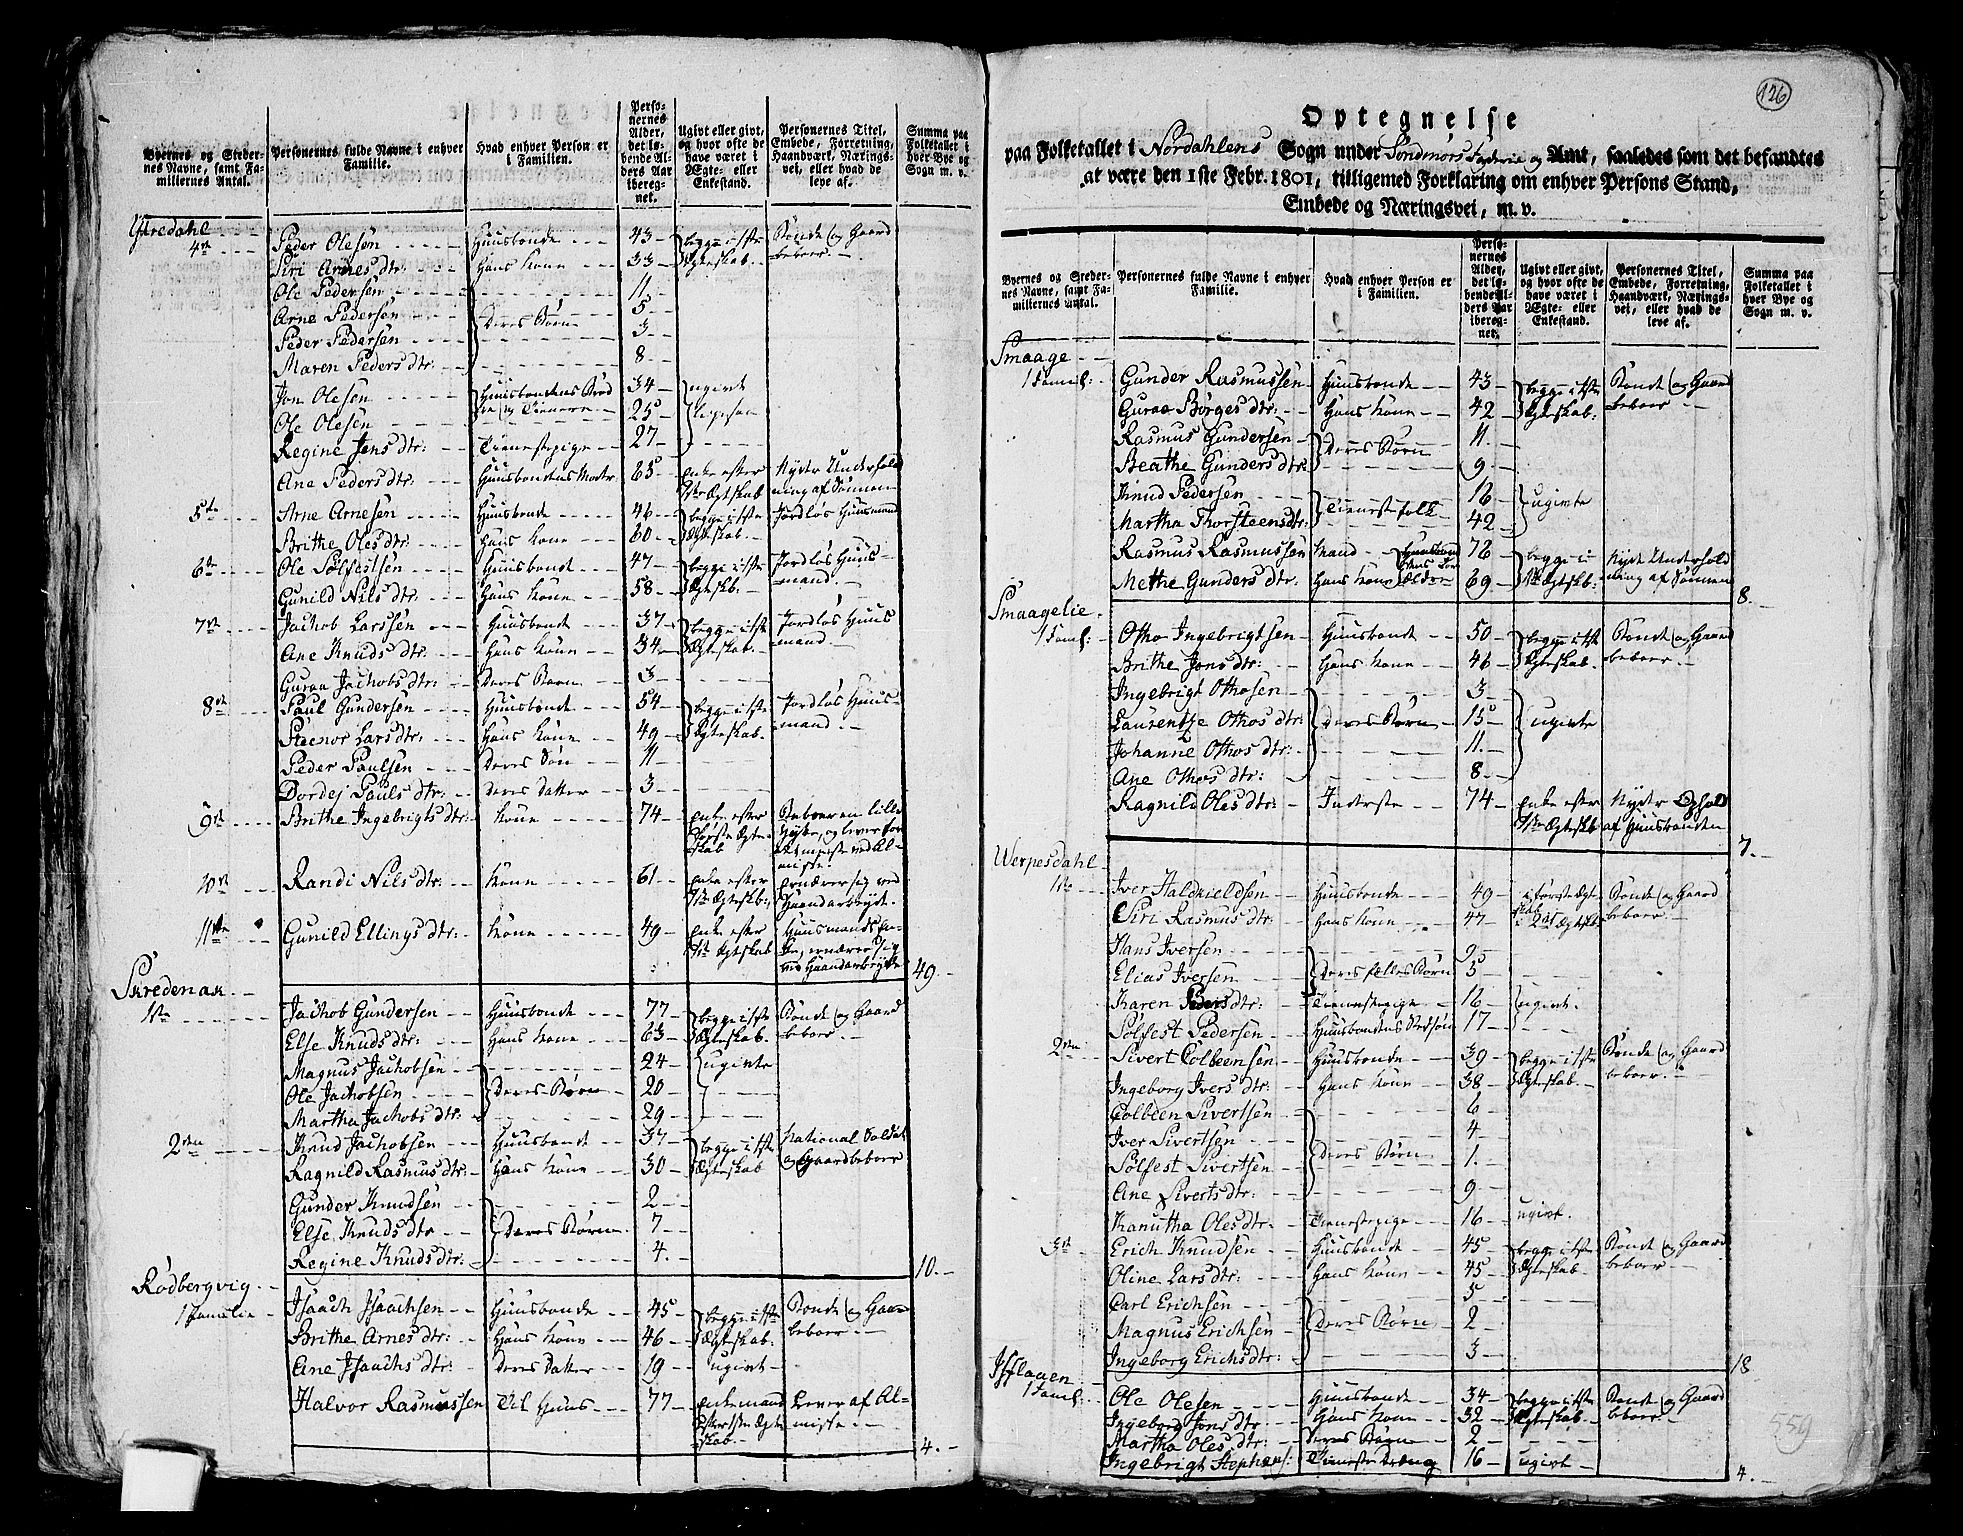 Byernes og Stedernes Navne, samt Familiernes Antal. | Personernes fulde Navne i enhver Familie. | Hvad enhver Person er i Familien. | Personernes Alder, det løbende Alders Aar iberegnet. | Ugivt eller givt, og hvor ofte de have været i Ægte- eller Enkestand. | Personernes Titel, Embede, Forretning, Haandværk, Næringsvei, eller hvad de leve af. | Summa paa Folketallet i hver Bye og Sogn m. v.
Ytredahl
4de Peder Olesen Huusbonde 43 begge i 1ste Bonde og Gaard
Siri Arnes dtr: Hans Kone 33 Ægteskab. beboer.
Ole Pedersen 11
Arne Pedersen Deres Børn 5
Peder Pedersen 3
Maren Peders dtr: 8
Jon Olesen Huusbondens Brød 34 ugivt
Ole Olesen re og Tienere 25
Regine Jens dtr: Tienestepige 27
Ane Peders dtr: Huusbondens Moder 65 enke efter Nyder Underhold
1ste Ægteskab ning af Sønnen
5te Arne Arnesen Huusbonde 46 begge i 1ste Jordløs Huusmand
Brithe Oles dtr: Hans Kone 60 Ægteskab.
6te Ole Sølfestsen Huusbonde 47 begge i 1ste Jordløs Huus-
Gunild Nils dtr: Hans Kone 58 Ægteskb: mand.
7de Jachob Larssen Huusbonde 37 begge i 1ste Jordløs Huus
Ane Knuds dtr: Hans Kone 34 Ægteskab. mand.
Guraa Jachobs dtr: Deres Barn 3
8de Paul Gundersen Huusbonde 54 begge i 1ste Jordløs Huus-
Steenor Lars dtr: Hans Kone 49 Ægteskab. mand
Peder Paulsen Deres Søn 11
Dordej Pauls dtr: Deres Datter 3
9de Brithe Ingebrigts dtr: Kone 74 enke efter Beboer en lille
første Ægte- Hytte, og lever for
skab det meste ved Al-
misse.
10de Randi Nils dtr: Kone 61 enke efter ernærer sig ved
1ste Ægteskb: Haandarbeyde.
11te Gunild Ellings dtr: Kone 49 enke efter Huusmands
1ste Ægteskab ernærer sig
ved Haandarbeyde 49
Skredenak
1ste Jachob Gundersen Huusbonde 77 begge i 1ste Bonde og Gaard
Else Knuds dtr: Hans Kone 63 Ægteskab. beboer.
Magnus Jachobsen 24 ugivte
Ole Jachobsen Deres Børn 20
Martha Jachobs dtr: 29
2den Knud Jachobsen Huusbonde 37 begge i 1ste National Soldat
Ragnild Rasmus dtr: Hans Kone 30 Ægteskab og Gaardbeboer
Gunder Knudsen 2
Else Knuds dtr Deres Børn 7
Regine Knuds dtr: 4. 10.
Rødbergvig
1 Familie Isaach Isaachsen Huusbonde 45 begge i 1ste Bonde og Gaar
Brithe Arnes dtr: Hans Kone 46 Ægteskab. beboer
Ane Isaachs dtr: Deres Datter 19 ugivt
Halvor Rasmussen Til Huus 77 enkemand Lever af Al-
efter 1ste Ægte misse.
skab 4.
126
Optegnelse
paa Folketallet i Nordahlens Sogn under Søndmørs Fogderie og Amt, saaledes som det befandtes
at være den 1ste Febr. 1801, tilligemed Forklaring om enhver Persons Stand,
Embede og Næringsvei, m. v.
Byernes og Stedernes Navne, samt Familiernes Antal. | Personernes fulde Navne i enhver Familie. | Hvad enhver Person er i Familien. | Personernes Alder, det løbende Alders Aar iberegnet. | Ugivt eller givt, og hvor ofte de have været i Ægte- eller Enkestand. | Personernes Titel, Embede, Forretning, Haandværk, Næringsvei, eller hvad de leve af. | Summa paa Folketallet i hver Bye og Sogn m. v.
Smaage
1 Famil: Gunder Rasmussen Huusbonde 43 begge i 1ste Bonde og Gaard
Guraa Børges dtr: Hans Kone 42 Ægteskab: beboer
Rasmus Gundersen Deres Børn 11.
Beathe Gunders dtr: 9
Knud Pedersen Tienestefolk 16 ugivte
Martha Thorsteens dtr: 42
Rasmus Rasmussen Mand 72 begge i Nyde Underhold
Methe Gunders dtr. Hans Kone Forældre 69 1ste Ægteskb: ning af Sønnen 8.
Smaagelie
1 Famil: Otho Ingebrigtsen Huusbonde 50 begge i 1ste Bonde og Gaard
Brithe Jons dtr: Hans Kone 46 Ægteskab. beboer.
Ingebrigt Othosen 3
Laurentze Othos dtr: Deres Børn 15 ugivte
Johanne Othos dtr: 11.
Ane Othos dtr: 8
Ragnild Oles dtr: Inderste 74 enke efter Nyder Ophold
1ste Ægteskb af Huusbonden 7.
Werpesdahl
1ste Iver Haldrieldsen Huusbonde 49 i første Ægt Bonde og Gaard
Siri Rasmus dtr: Hans Kone 47 i 2det Ægtesk: beboer.
Hans Iversen 9
Elias Iversen Deres fælles Børn 5
Karen Peders dtr: Tienestepige 16 ugivt.
Sølfest Pedersen Huusbondens Stedsøn 17
2den Sivert Colbeensen Huusbonde 39 begge i 1ste Bonde og Gaard
Ingeborg Ivers dtr: Hans Kone 38 Ægteskab. beboer.
Colbeen Sivertsen 6
Iver Sivertsen 4.
Sølfest Sivertsen Deres Børn 1.
Ane Siverts dtr: 9
Kanutha Oles dtr. Tienestepige 16 ugivt.
3de Erich Knudsen Huusbonde 45 begge i 1ste Bonde og Gaard
Oline Lars dtr: Hans Kone 45 Ægteskab. beboer.
Carl Erichsen 5
Magnus Erichsen Deres Børn 2
Ingeborg Erichs dtr: 3 18
1 Famil: Ole Olesen Huusbonde 34 begge i 1ste Bonde og Gaard
Ingeborg Jons dtr: Hans Kone 32 Ægteskab. beboer.
Martha Oles dtr: Deres Børn 2
Ingebrigt Stephens: Tieneste Dreng 16 ugivt 4.
559